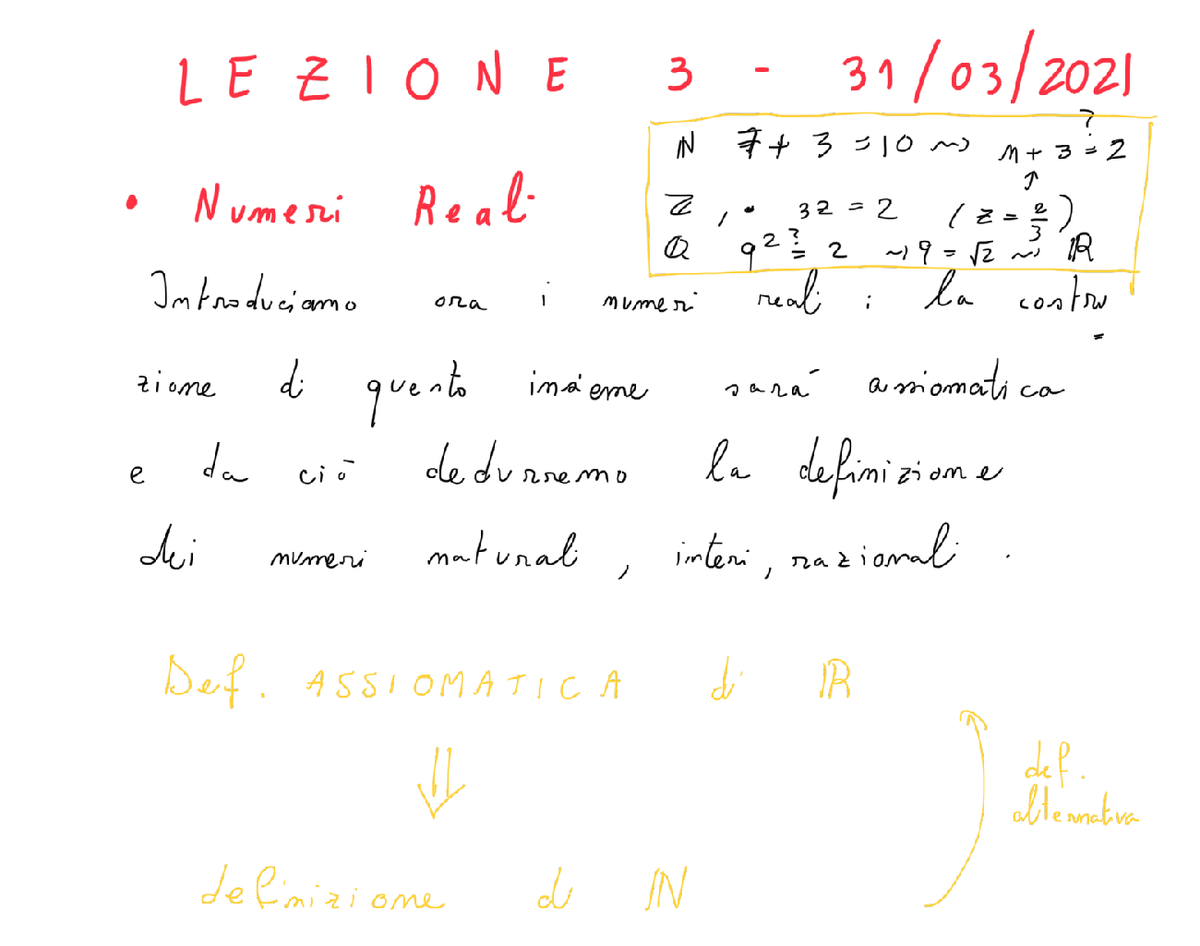 LEZIONE 3 - 31/03/2021
ℕ 7 + 3 = 10 ⇝ n + 3 ≟ 2
↑
• Numeri Reali
ℤ, • 3z = 2 (z = 2/3)
ℚ q² ≟ 2 ⇝ q = √2 ⇝ ℝ
Introduciamo ora i numeri reali : la costru
=
zione di questo insieme sarà assiomatica
e da ciò dedurremo la definizione
dei numeri naturali, interi, razionali.
Def. ASSIOMATICA di ℝ
⇓
def.
alternativa
definizione di ℕ